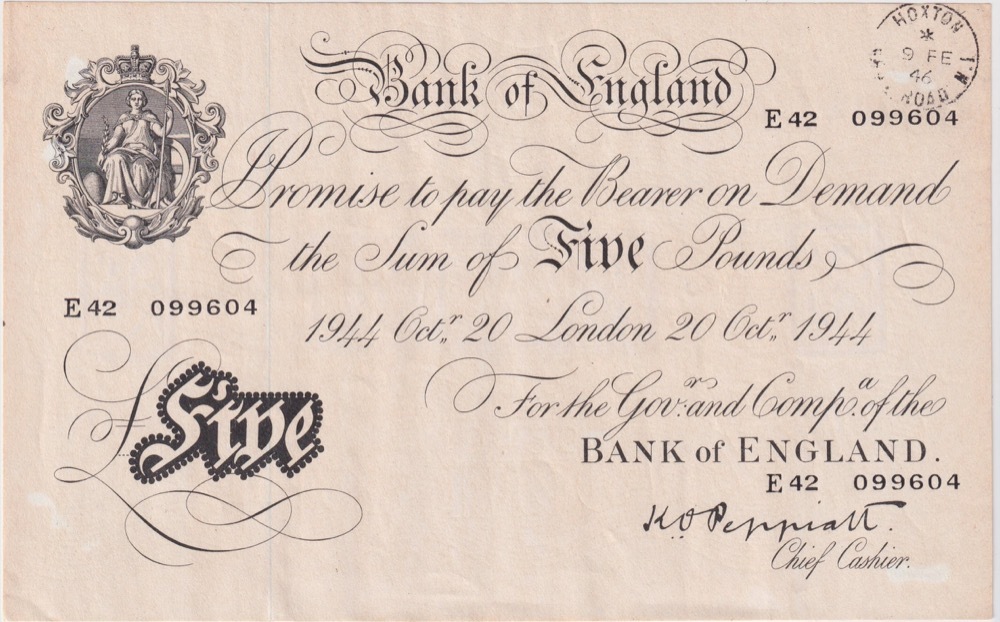 HOXTON
*
9 FE
46
ROAD N.1
Bank of England
E 42 099604
I Promise to pay the Bearer on Demand
the Sum of Five Pounds
E 42 099604
1944 Octr. 20 London 20 Octr. 1944
£ Five
For the Govr. and Compa. of the
BANK of ENGLAND.
E 42 099604
K.O. Peppiatt.
Chief Cashier.